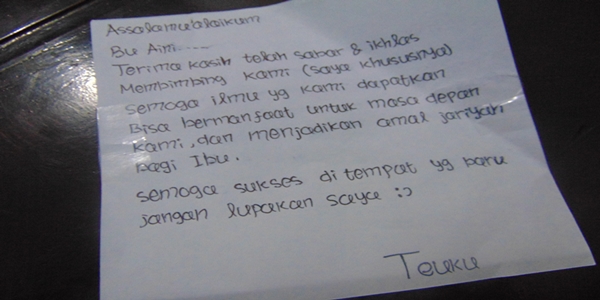 Assalamu'alaikum
Bu Aini.....
Terima kasih telah sabar & ikhlas
Membimbing kami (saya khususnya)
semoga ilmu yg kami dapatkan
Bisa bermanfaat untuk masa depan
kami, dan menjadikan amal jariyah
bagi Ibu.
semoga sukses di tempat yg baru
jangan lupakan saya :)
Teuku